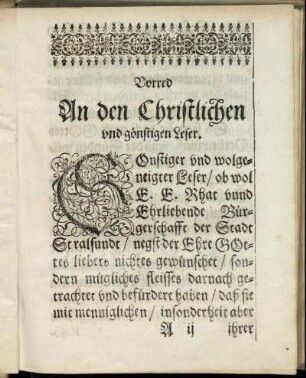 Vorred
An den Christlichen
vnd gönstigen Leser.
GOnstiger vnd wolge-
neigter Leser / ob wol
E. E. Rhat vnnd
Ehrliebende Bür-
gerschafft der Stadt
Stralsundt / negst der Ehre GOt-
tes liebers nichtes gewünschet / son-
dern mügliches fleisses darnach ge-
trachtet vnd befürdert haben / daß sie
mit menniglichen / insonderheit aber
A ij ihrer